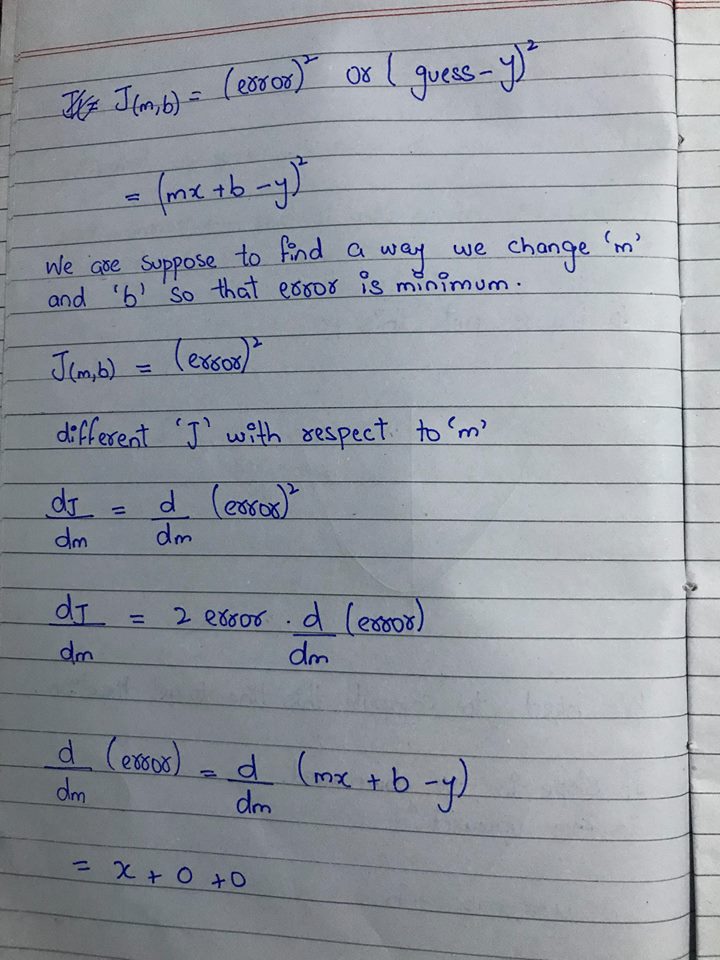 J(m,b) = (error)² or (guess-y)²
= (mx+b-y)²
We are suppose to find a way we change 'm'
and 'b' so that error is minimum.
J(m,b) = (error)²
different 'J' with respect to 'm'
dJ/dm = d/dm (error)²
dJ/dm = 2 error . d/dm (error)
d/dm (error) = d/dm (mx+b-y)
= x+0+0